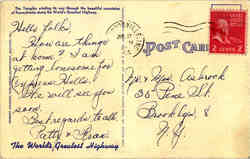 The Turnpike winding its way through the beautiful mountains
of Pennsylvania along the World's Greatest Highway.
POST CARD
Hello folks,
How are things
at home? I am
getting lonesome for
Cypress Hills.
We will see you
soon.
Best regards to all.
Patty &
The World's Greatest Highway
2 CENTS 2
Mr & Mrs
36 Pine St.
Brooklyn 8
N.Y.